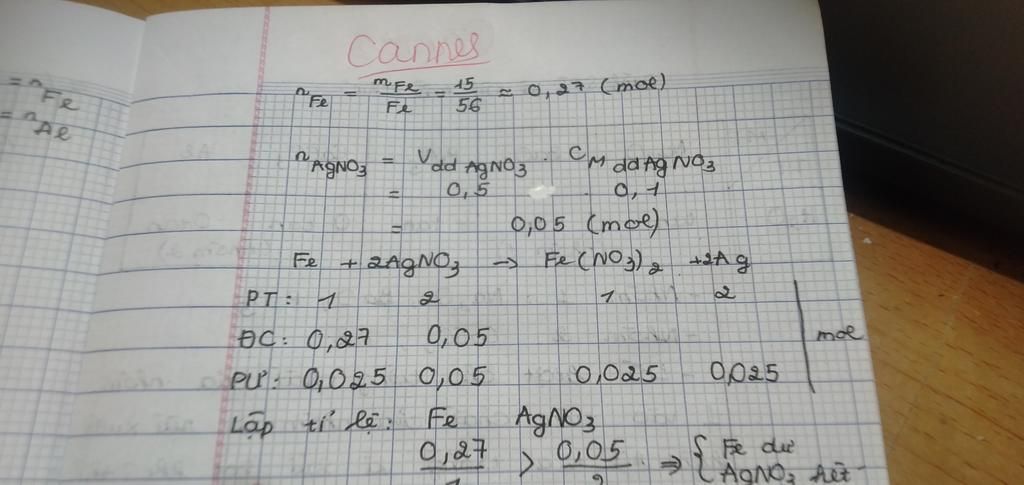 Cannes
= nFe
= nAl
nFe = mFe/Fe = 15/56 ≈ 0,27 (mol)
nAgNO3 = Vdd AgNO3 . CM ddAgNO3
= 0,5 . 0,1
= 0,05 (mol)
Fe + 2AgNO3 → Fe(NO3)2 + 2Ag
PT: 1 2 1 2
ĐC: 0,27 0,05 mol
PƯ: 0,025 0,05 0,025 0,025
Lập tỉ lệ: Fe AgNO3
0,27/1 > 0,05/2 ⇒ { Fe dư
AgNO3 hết